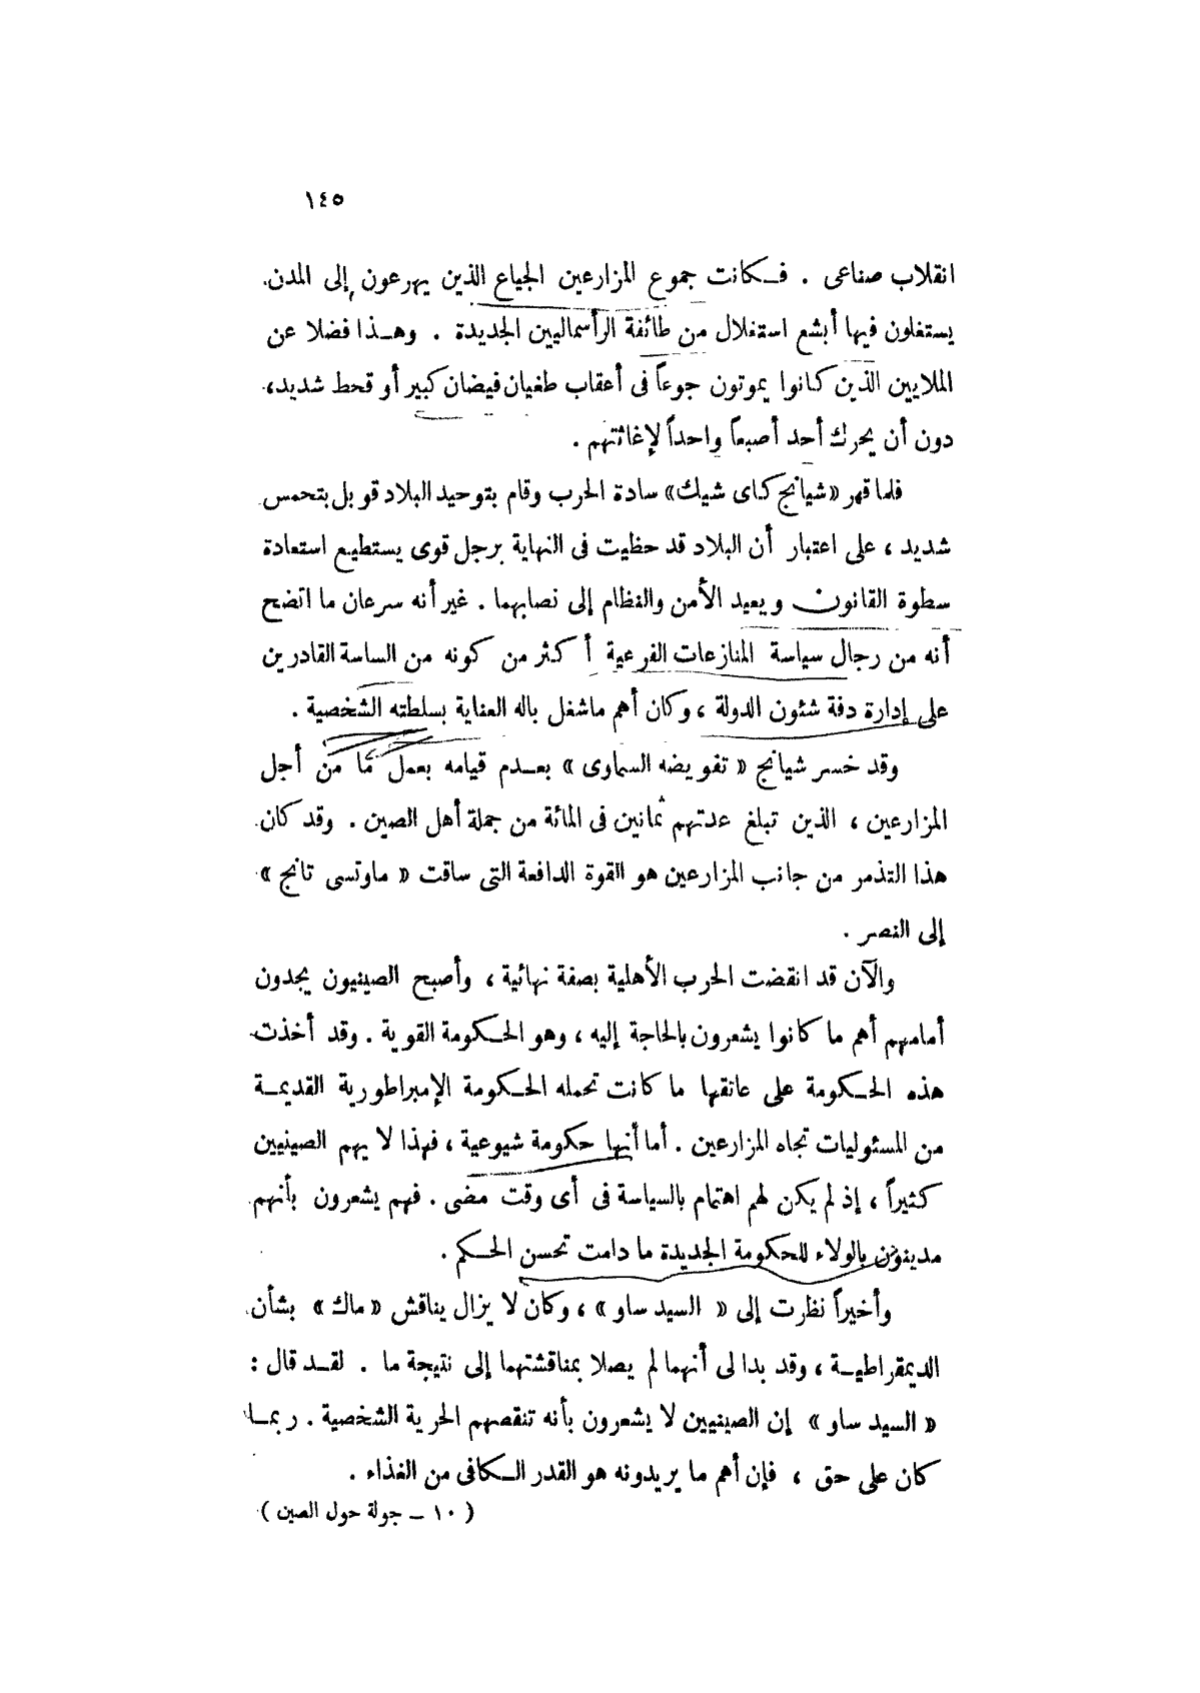 ١٤٥
انقلاب صناعى . فكانت جموع المزارعين الجياع الذين يهرعون إلى المدن
يستغلون فيها أبشع استغلال من طائفة الرأسماليين الجديدة . وهذا فضلا عن
الملايين الذين كانوا يموتون جوعاً فى أعقاب طغيان فيضان كبير أو قحط شديد،
دون أن يحرك أحد أصبعاً واحداً لإغاثتهم .
فلما قهر «شيانج كاى شيك» سادة الحرب وقام بتوحيد البلاد قوبل بتحمس
شديد ، على اعتبار أن البلاد قد حظيت فى النهاية برجل قوى يستطيع استعادة
سطوة القانون ويعيد الأمن والنظام إلى نصابهما . غير أنه سرعان ما اتضح
أنه من رجال سياسة المنازعات الفرعية أكثر من كونه من الساسة القادرين
على إدارة دفة شئون الدولة ، وكان أهم ماشغل باله العناية بسلطته الشخصية .
وقد خسر شيانج « تفويضه السماوى » بعدم قيامه بعمل ما من أجل
المزارعين ، الذين تبلغ عدتهم ثمانين فى المائة من جملة أهل الصين . وقد كان
هذا التذمر من جانب المزارعين هو القوة الدافعة التى ساقت « ماوتسى تانج »
إلى النصر .
والآن قد انقضت الحرب الأهلية بصفة نهائية ، وأصبح الصينيون يجدون
أمامهم أهم ما كانوا يشعرون بالحاجة إليه ، وهو الحكومة القوية . وقد أخذت
هذه الحكومة على عاتقها ما كانت تحمله الحكومة الإمبراطورية القديمة
من المسئوليات تجاه المزارعين . أما أنها حكومة شيوعية ، فهذا لا يهم الصينيين
كثيراً ، إذ لم يكن لهم اهتمام بالسياسة فى أى وقت مضى . فهم يشعرون بأنهم
مدينون بالولاء للحكومة الجديدة ما دامت تحسن الحكم .
وأخيراً نظرت إلى « السيد ساو » ، وكان لا يزال يناقش «ماك» بشأن
الديمقراطية ، وقد بدا لى أنهما لم يصلا بمناقشتهما إلى نتيجة ما . لقد قال :
« السيد ساو » إن الصينيين لا يشعرون بأنه تنقصهم الحرية الشخصية . ربما
كان على حق ، فإن أهم ما يريدونه هو القدر الكافى من الغذاء .
( ١٠ – جولة حول الصين )